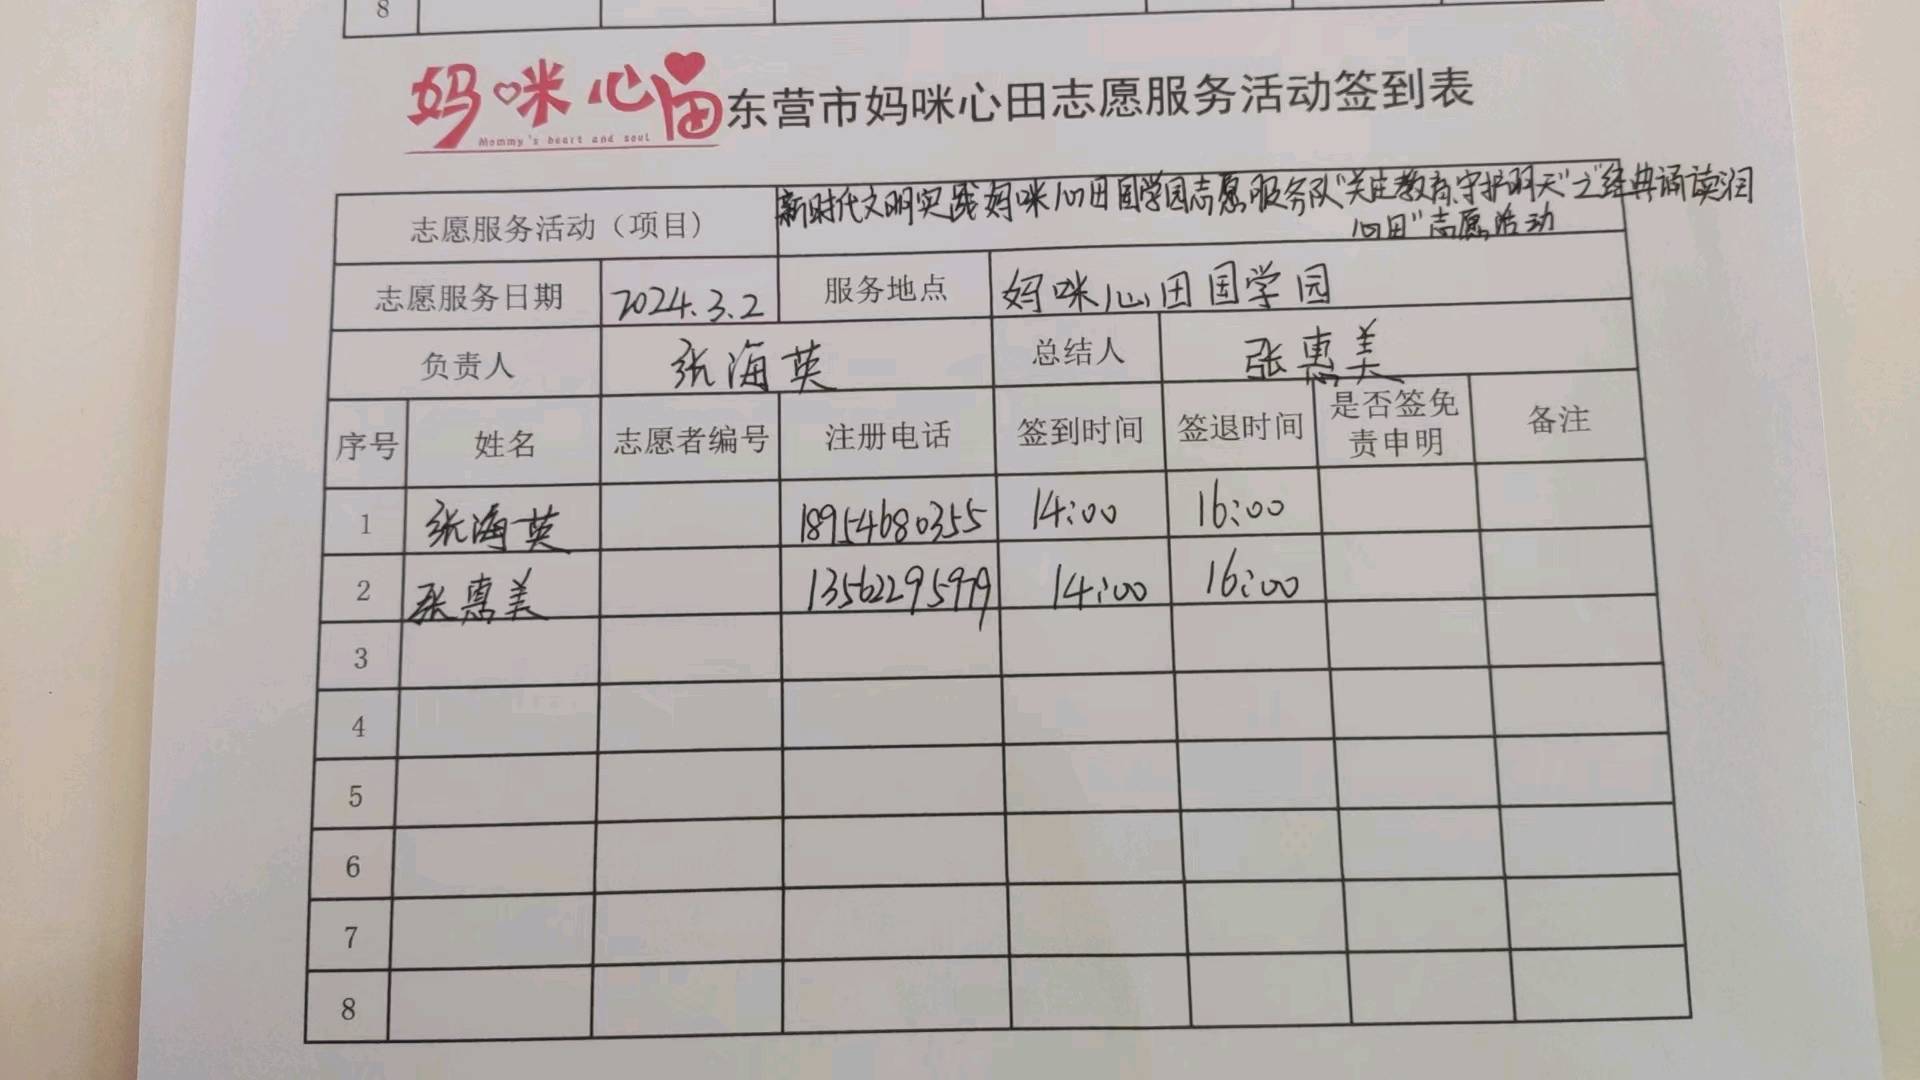 8
妈咪心田 东营市妈咪心田志愿服务活动签到表
Mommy's heart and soul
志愿服务活动（项目） 新时代文明实践妈咪心田国学园志愿服务队"关注教育,守护明天"之"经典诵读润
心田"志愿活动
志愿服务日期 2024.3.2 服务地点 妈咪心田国学园
负责人 张海英 总结人 张惠美
序号 姓名 志愿者编号 注册电话 签到时间 签退时间 是否签免 备注
责申明
1 张海英 18954680355 14:00 16:00
2 张惠美 13562295979 14:00 16:00
3
4
5
6
7
8